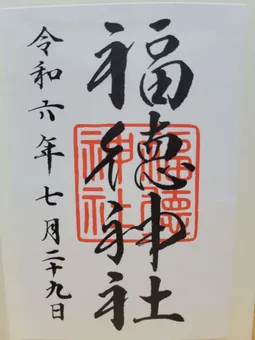 福徳神社
福徳
神社
令和六年七月二十九日